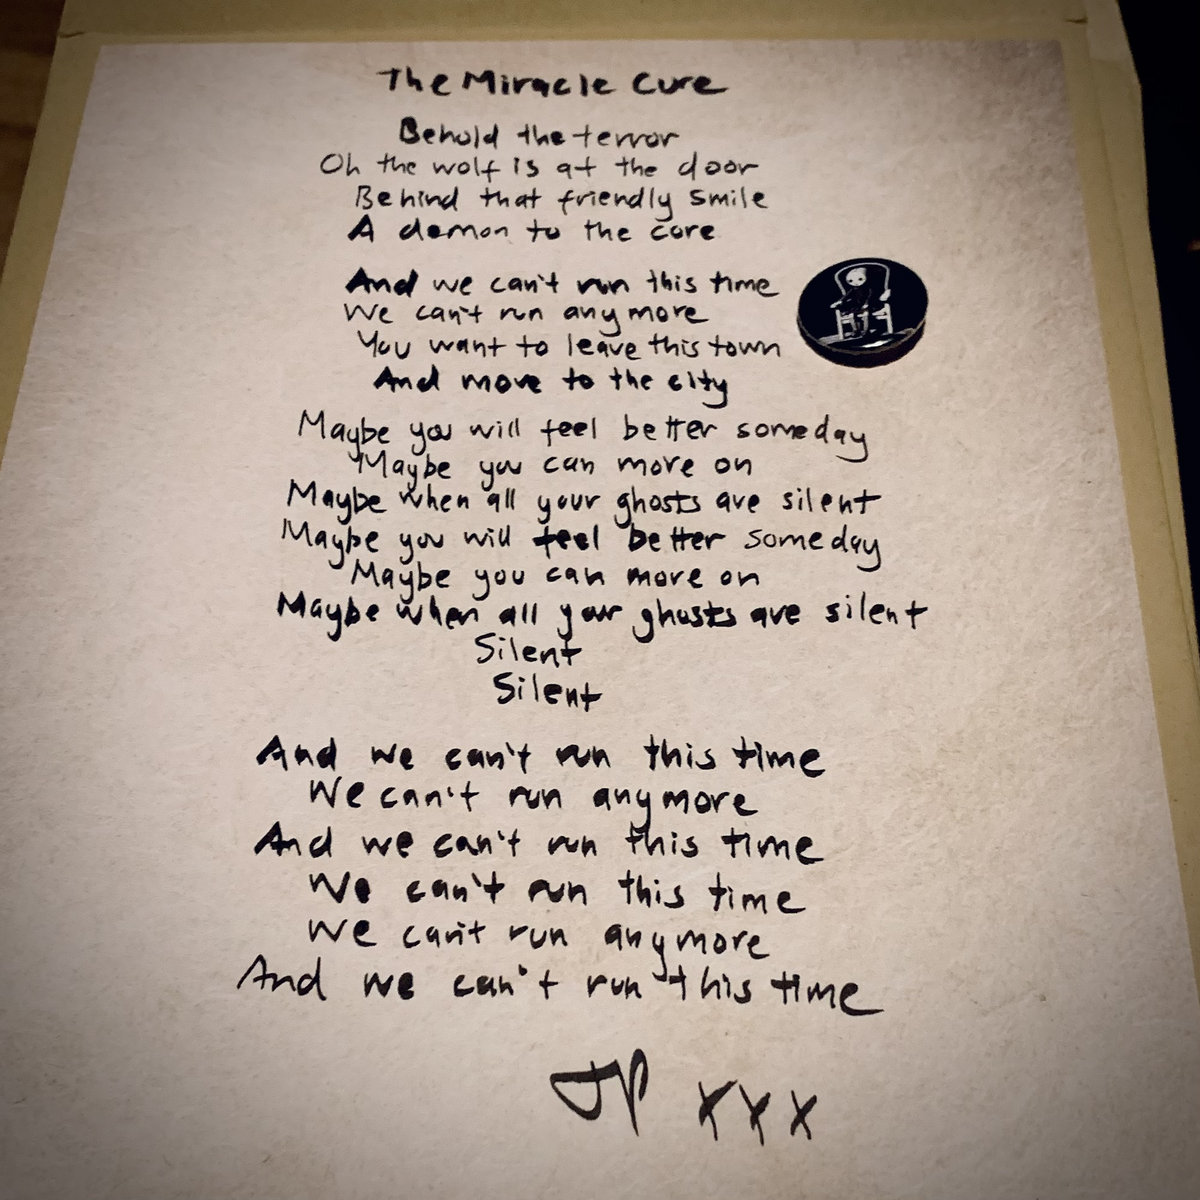 The Miracle Cure
Behold the terror
Oh the wolf is at the door
Behind that friendly smile
A demon to the core
And we can't run this time
We can't run anymore
You want to leave this town
And move to the city
Maybe you will feel better someday
Maybe you can move on
Maybe when all your ghosts are silent
Maybe you will feel better someday
Maybe you can move on
Maybe when all your ghosts are silent
Silent
Silent
And we can't run this time
We can't run anymore
And we can't run this time
We can't run this time
We can't run anymore
And we can't run this time
JP xxx